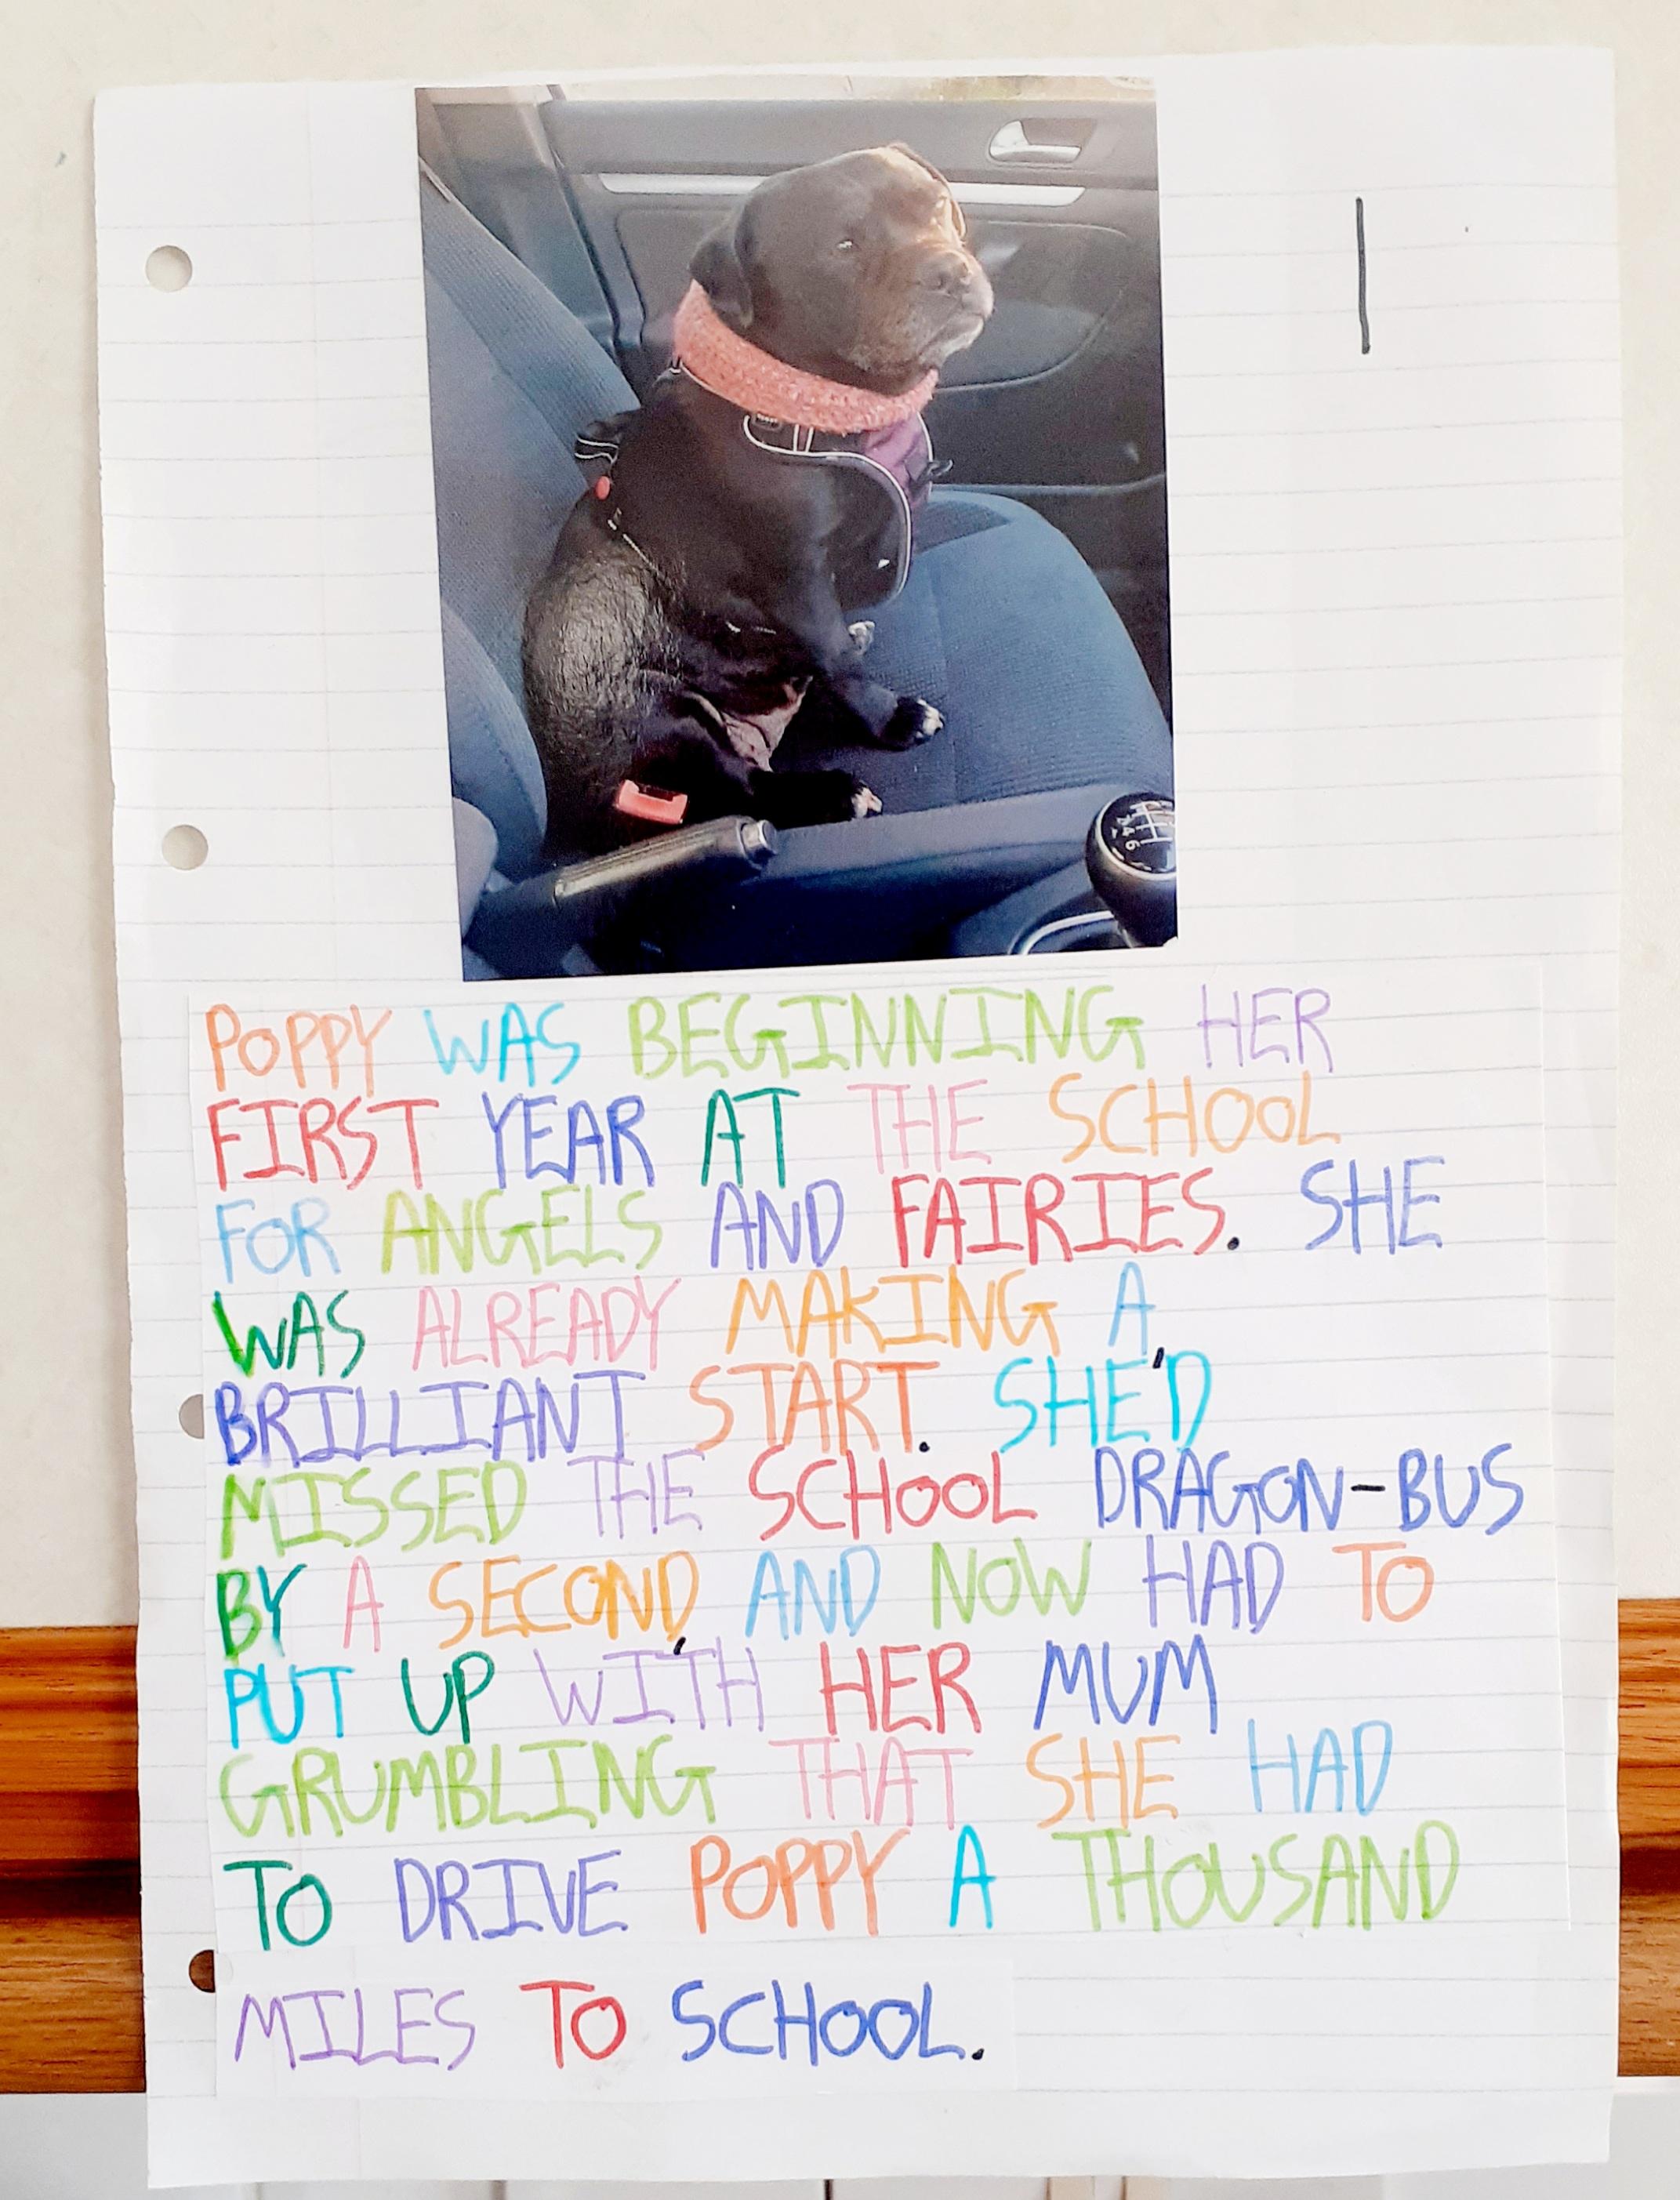 1
POPPY WAS BEGINNING HER
FIRST YEAR AT THE SCHOOL
FOR ANGELS AND FAIRIES. SHE
WAS ALREADY MAKING A
BRILLIANT START. SHE'D
MISSED THE SCHOOL DRAGON-BUS
BY A SECOND, AND NOW HAD TO
PUT UP WITH HER MUM
GRUMBLING THAT SHE HAD
TO DRIVE POPPY A THOUSAND
MILES TO SCHOOL.